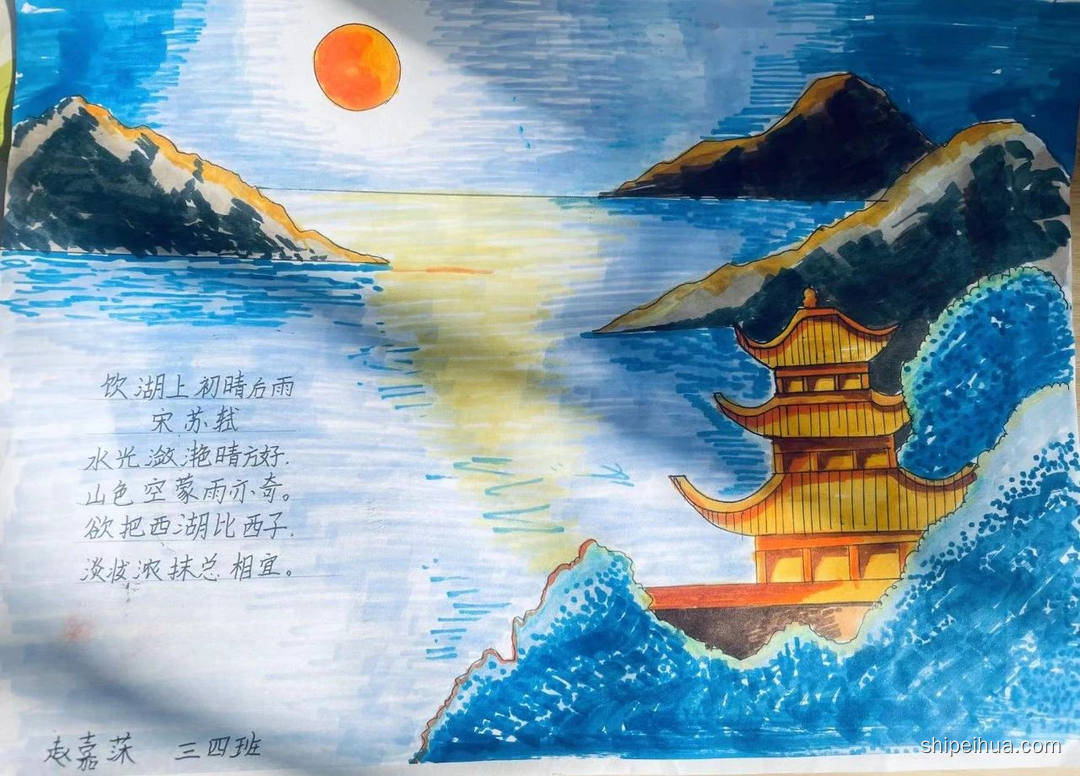 饮湖上初晴后雨
宋 苏轼
水光潋滟晴方好.
山色空蒙雨亦奇。
欲把西湖比西子.
淡妆浓抹总相宜。
赵嘉茱 三四班
shipeihua.com